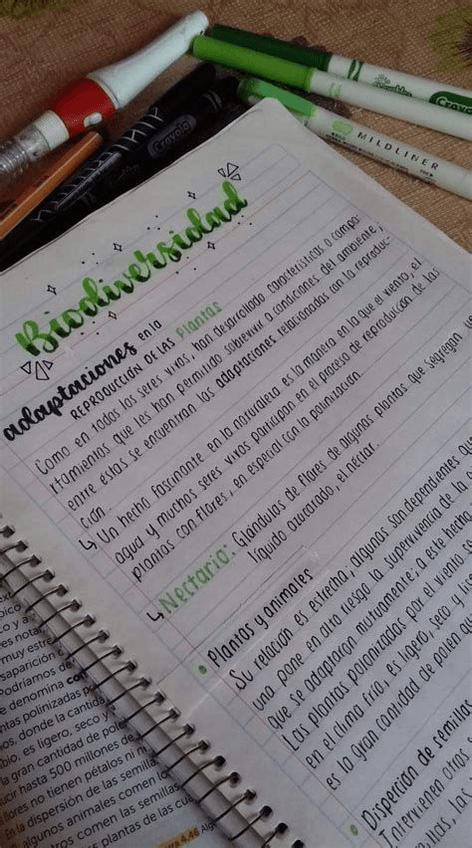 Crayola
MILDLINER
Crayola
Biodiversidad
adaptaciones en la
REPRODUCCIÓN DE LAS Plantas
Como en todos los seres vivos, han desarrollado características o compor-
tamientos que les han permitido sobrevivir a condiciones del ambiente,
entre estas se encuentran las adaptaciones relacionadas con la reproduc-
ción.
↳ Un hecho fascinante en la naturaleza es la manera en la que el viento, el
agua y muchos seres vivos participan en el proceso de reproducción de las
plantas con flores, en especial con la polinización.
↳ Nectario: Glándulas de flores de algunas plantas que segregan
líquido azucarado, el néctar.
• Plantas y animales
Su relación es estrecha; algunas son dependientes
una pone en alto riesgo la supervivencia de la
que se adaptaron mutuamente; a este hecho
Las plantas polonizadas por el viento
en el clima frío, es ligero, seco y
es la gran cantidad de polen
• Disperción de semillas
Intervienen otros
muy estre
saparición
odríamos de
e denomina co
ntas polinizadas
os, donde la cantida
bio, es ligero, seco y
la gran cantidad de pole
ucir hasta 500 millones de
flores no tienen pétalos ni n
En la dispersión de las semilla
algunos animales comen lo
tros comen las semillas
plantas de las cu
4.46 Alg